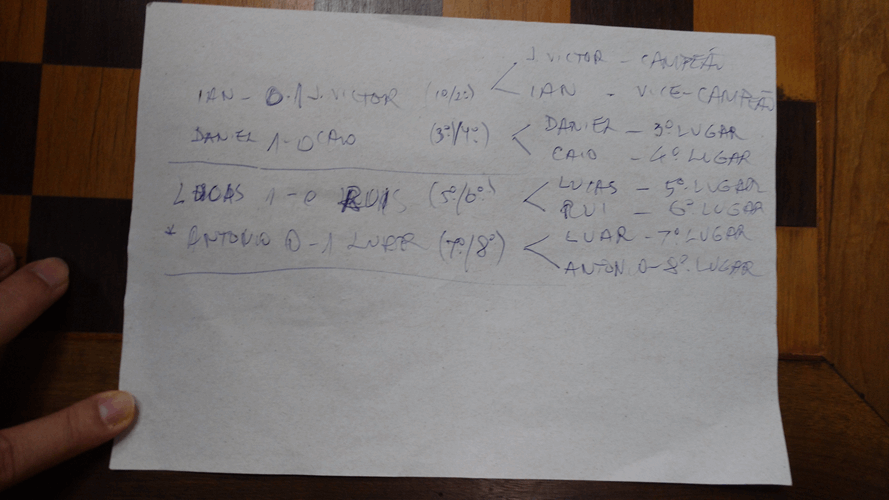 J. VICTOR - CAMPEÃO
IAN - 0-1 J. VICTOR (1º/2º) IAN - VICE-CAMPEÃO
DANIEL 1-0 CAIO (3º/4º) DANIEL - 3º LUGAR
CAIO - 4º LUGAR
LUCAS 1-0 RUI (5º/6º) LUCAS - 5º LUGAR
RUI - 6º LUGAR
* ANTONIO 0-1 LUAR (7º/8º) LUAR - 7º LUGAR
ANTONIO - 8º LUGAR